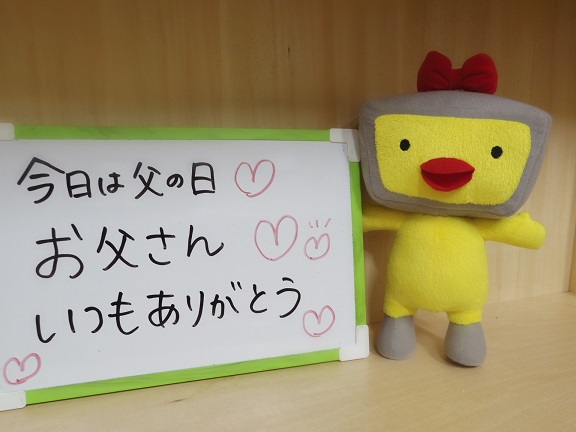 今日は父の日
お父さん
いつもありがとう